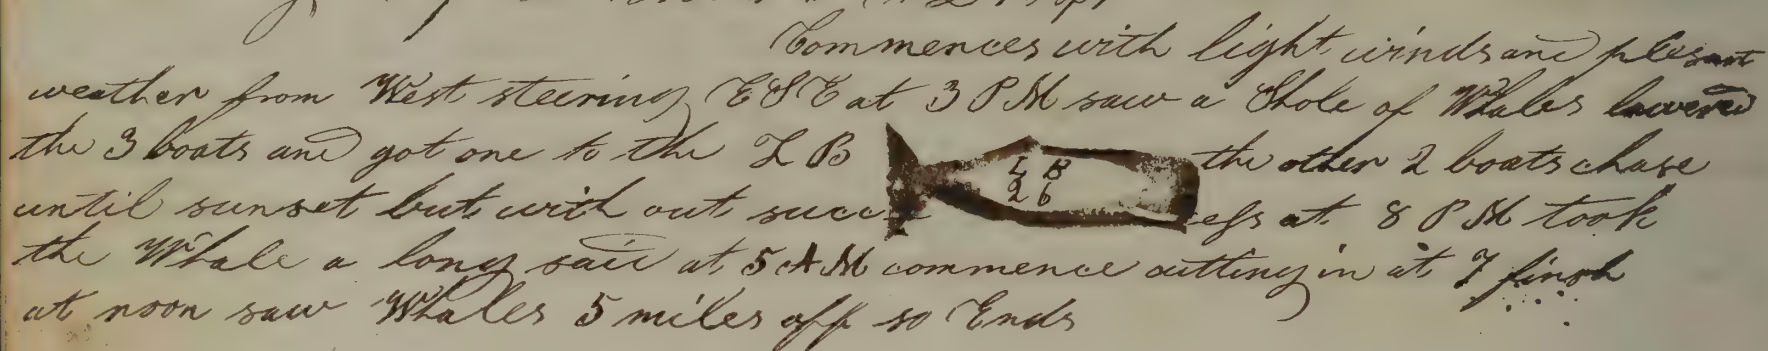 Commences with light winds and plesant
weather from West steering ESE at 3 PM saw a Shole of Whales lowered
the 3 boats and got one to the L B L B the other 2 boats chase
26
until sunset but with out success at 8 PM took
the Whale a long said at 5 AM commence cutting in at 7 finsh
at noon saw Whales 5 miles off so Ends